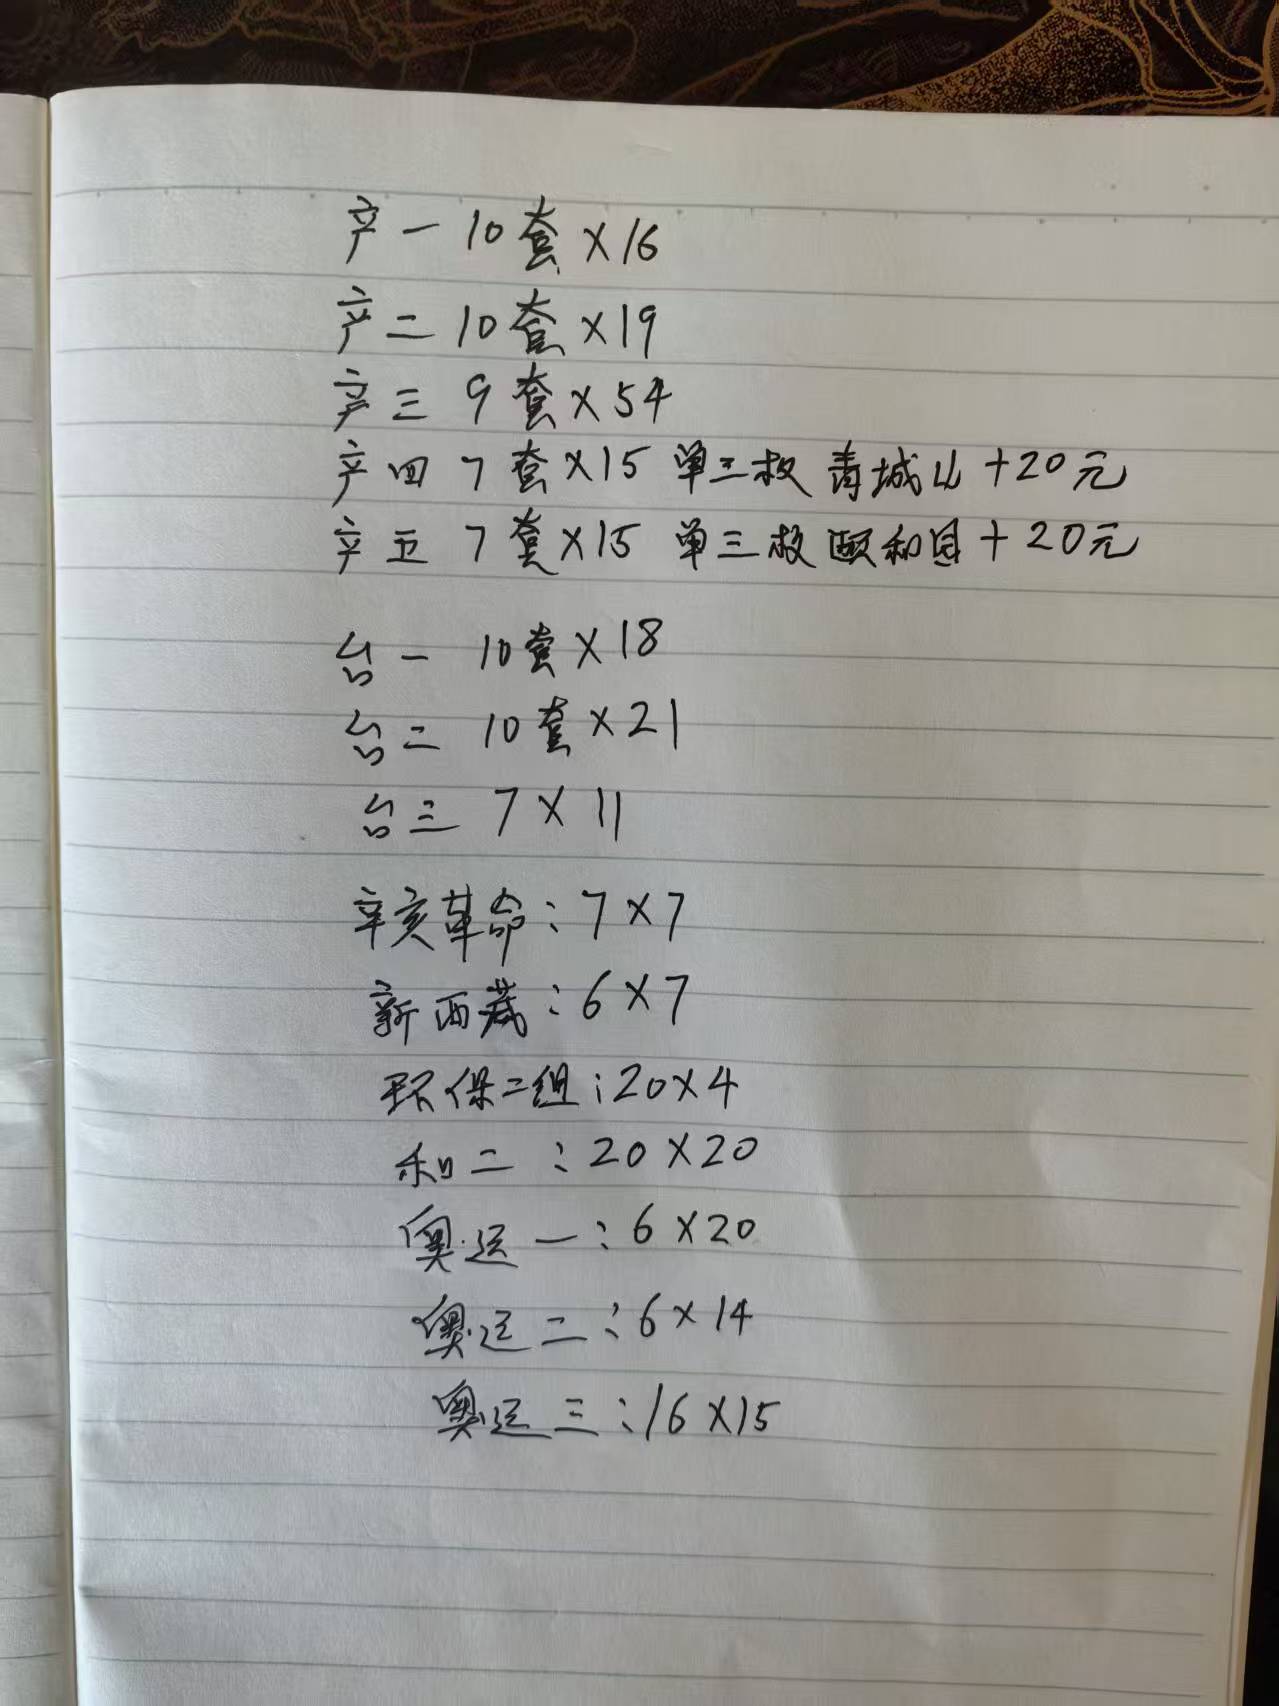 产一 10套×16
产二 10套×19
产三 9套×54
产四 7套×15 单三枚 青城山+20元
产五 7套×15 单三枚 颐和园+20元
台一 10套×18
台二 10套×21
台三 7×11
辛亥革命:7×7
新西藏:6×7
环保二组:20×4
和二:20×20
奥运一:6×20
奥运二:6×14
奥运三:16×15